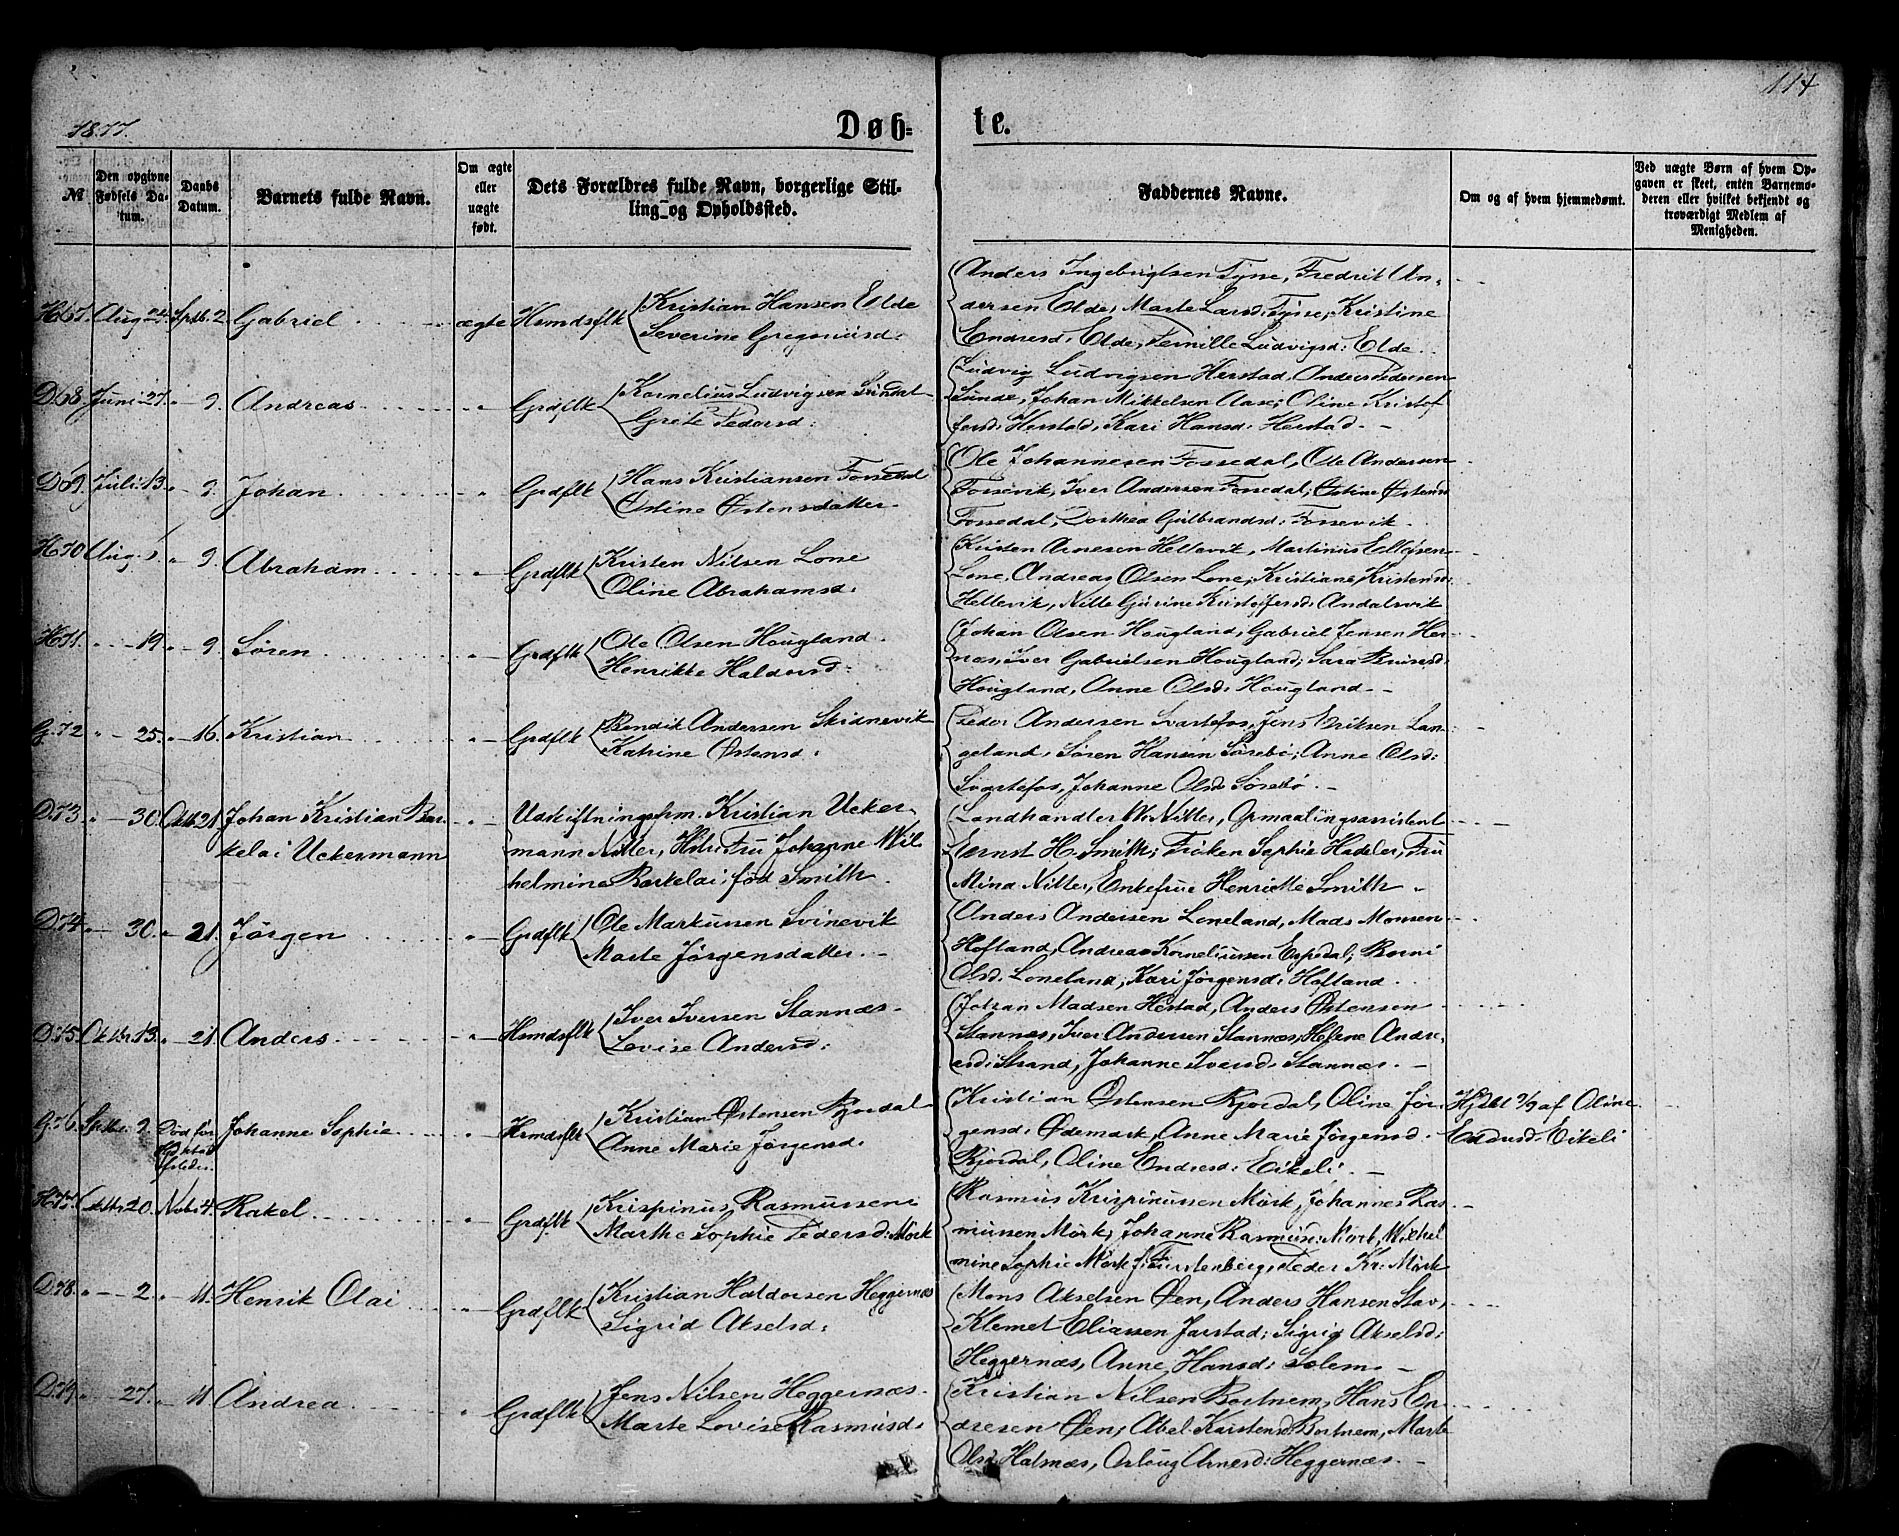 114
1877.
Døb=
te.
№
Den opgivne
Fødsels Da-
tum.
Daabs
Datum.
Barnets fulde Navn.
Om ægte
eller
uægte
født.
Dets Forældres fulde Navn, borgerlige Stil-
ling og Opholdssted.
Faddernes Navne.
Om og af hvem hjemmedøbt.
Ved uægte Børn af hvem Op-
gaven er skeet, enten Barnemo-
deren eller hvilket bekjendt og
troværdigt Medlem af
Menigheden.
H67. Aug 24. Septb. 2. Gabriel ægte Hsmdsflk Kristian Hansen Elde
Severine Gregoriusd:
Anders Ingebrigtsen Tyne, Fredrik An-
dersen Elde, Marte Larsd: Tyne, Kristine
Endresd: Elde, Pernille Ludvigsd: Elde.
D68. Juni 27. " 9. Andreas " Grdflk Kornelius Ludvigsen Sundal
Grete Pedersd:
Ludvig Ludvigsen Herstad, Anders Pedersen
Sunde, Johan Mikkelsen Aase, Oline Kristof
fersd: Herstad, Kari Hansd: Herstad. -
D69. Juli 13. " 9. Johan " Grdflk Hans Kristiansen Fossedal
Ostine Østensdatter.
Ole Johannesen Fossedal, Ole Andersen
Fossevik, Iver Andersen Fossedal, Ostine Østensd
Fossedal, Dorthea Gulbrandsd: Fossevik.
H70 Aug. 1 " 9. Abraham " Grdflk Kristen Nilsen Lone
Oline Abrahamsd:
Kristen Arnesen Hellevik, Martinus Ellefsen
Lone, Andreas Olsen Lone, Kristiane Kristensd.
Hellevik, Nille Gurine Kristofersd: Andalsvik
H71. " 19. " 9. Søren " Grdflk Ole Olsen Hougland.
Henrikke Haldorsd:
Johan Olsen Hougland, Gabriel Jensen Her-
nes, Iver Gabrielsen Hougland, Sara
Hougland, Anne Olsd: Hougland. -
G.72 " 25. " 16. Kristian " Grdflk Bendik Andersen Skidnevik
Katrine Østensd:
Peder Andersen Svartefos, Jens Eriksen Lan-
geland, Søren Hansen Sørebø, Anne Olsd:
Svartefos, Johanne Olsd Sørebø. -
D.73 " 30. Oktb 21. Johan Kristian Bar-
kelai Uckermann " Udskiftningsfm. Kristian Ucker-
mann Nitter, Hstr Fru Johanne Wil
helmine Barkelai, fød Smith.
Landhandler W. Nitter, Opmaalingsassistent
Ernst H. Smith, Frøken Sophie Hadeler, Fru
Mina Nitter, Enkefrue Henriette Smith.
D.74 " 30. " 21. Jørgen " Grdflk Ole Markussen Svinevik
Marte Jørgensdatter. -
Anders Andersen Loneland, Mads Monsen
Hofland, Andreas Korneliussen Espedal, Borni
Olsd. Loneland, Kari Jørgensd: Hofland.
D.75. Oktbr. 13. " 21. Anders " Hsmdsflk Iver Iversen Stannæs.
Lovise Andersd:
Johan Madsen Hestad, Anders Østensen
Stannæs, Iver Andersen Stannæs, Helene Andr-
esd: Strand, Johanne Iversd. Stannæs. -
G.76. Septbr. 9. Død før Johanne Sophie " Hsmdsflk Kristian Østensen Rjordal
Anne Marie Jørgensd.
Kristian Østensen Rjordal, Oline Jør-
gensd: Ødemark, Anne Marie Jørgensd.
Rjordal, Oline Endresd: Eikeli. -
Hjdbt 9/9 af Oline
Endresd. Eikeli
H.77. Oktbr. 20. Novbr 4. Rakel " Grdflk Krispinus Rasmussen
Marthe Sophie Pedersd: Mørk
Rasmus Krispinussen Mørk, Johannes Ras-
mussen Mørk, Johanne Rasmusd: Mørk, Wilhel
mine Sophie Mørk f. Fürstenberg, Peder Kr. Mørk
D.78. " 2. " 11. Henrik Olai " Grdflk Kristian Haldorsen Heggernæs
Sigrid Akselsd:
Mons Akselsen Øen, Anders Hansen Stav,
Klemet Eliassen Jarstad, Sigrig Akselsd:
Heggernæs, Anne Hansd: Solem. -
D.79. " 27. " 11. Andrea " Grdflk Jens Nilsen Heggernæs.
Marte Lovise Rasmusd.
Kristian Nilsen Bortnem, Hans En-
dresen Øen, Abel Karstensd: Bortnem, Marte
Olsd Halsnæs, Oslaug Arnesd: Heggernæs. -